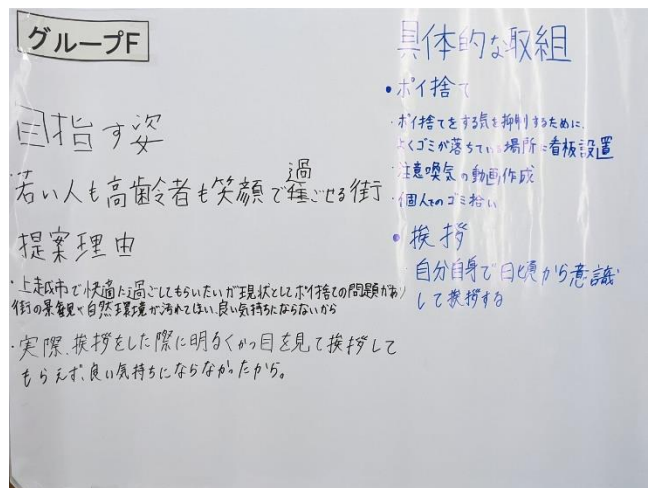 グループF
目指す姿
若い人も高齢者も笑顔で過ごせる街
提案理由
・上越市で快適に過ごしてもらいたいが現状としてポイ捨ての問題があり
街の景観や自然環境が汚れてしまい、良い気持ちにならないから
・実際、挨拶をした際に明るくかつ目を見て挨拶して
もらえず、良い気持ちにならなかったから。
具体的な取組
・ポイ捨て
・ポイ捨てをする気を抑制するために、
よくゴミが落ちている場所に看板設置
・注意喚気の動画作成
・個人でのゴミ拾い
・挨拶
自分自身で日頃から意識
して挨拶する